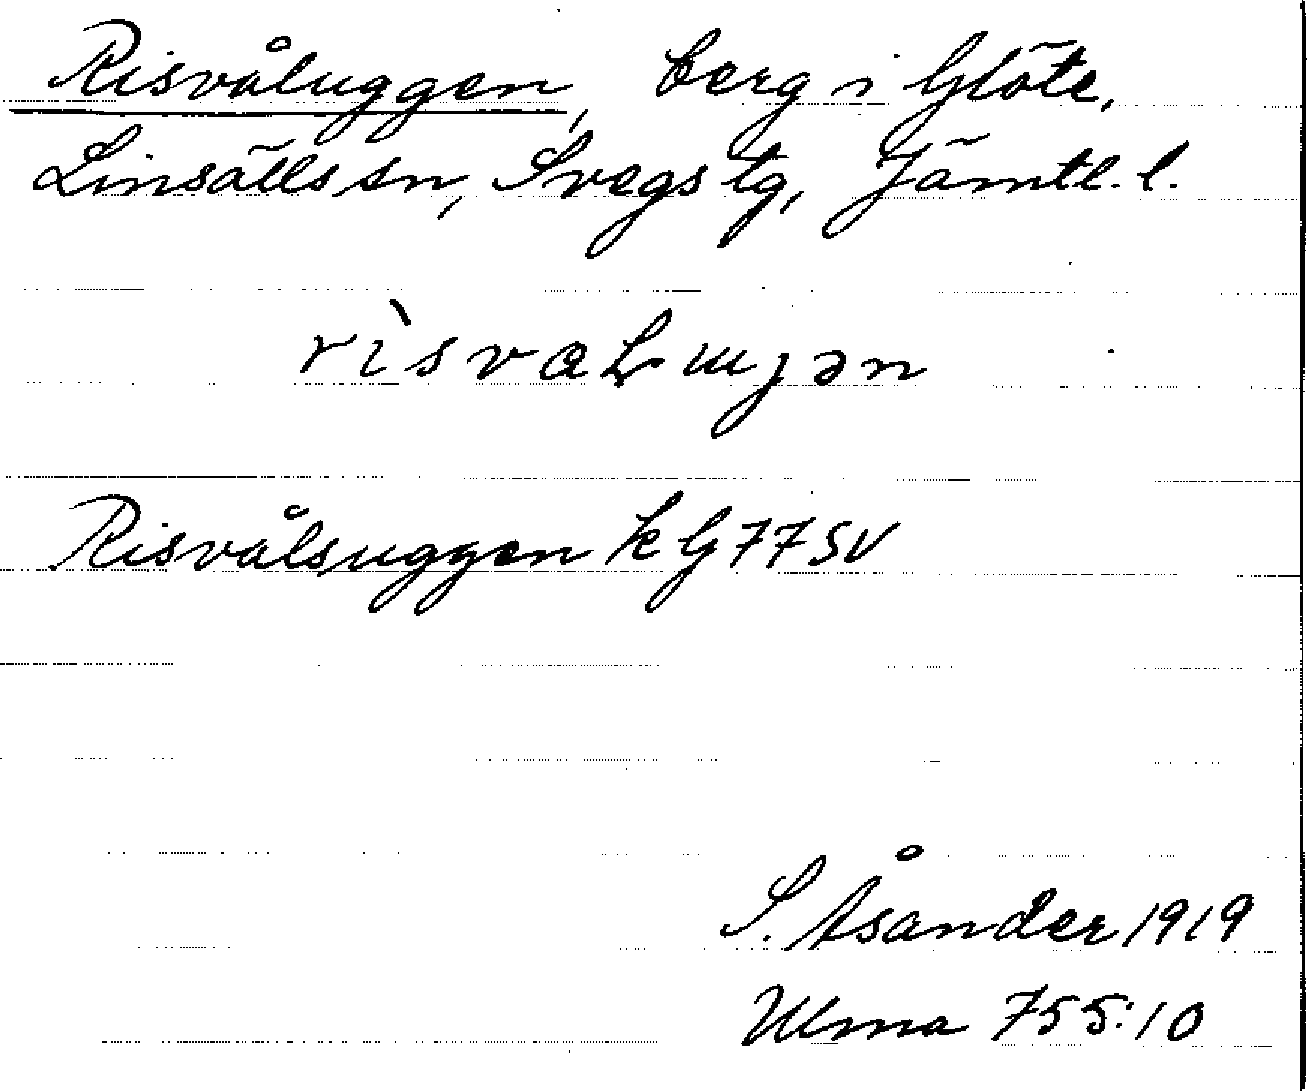 Risvåluggen, berg i Glöte,
Linsälls sn, Svegs tg, Jämtl. l.
Risvålsuggen kG77SV
S. Åsander 1919
Ulma 755:10